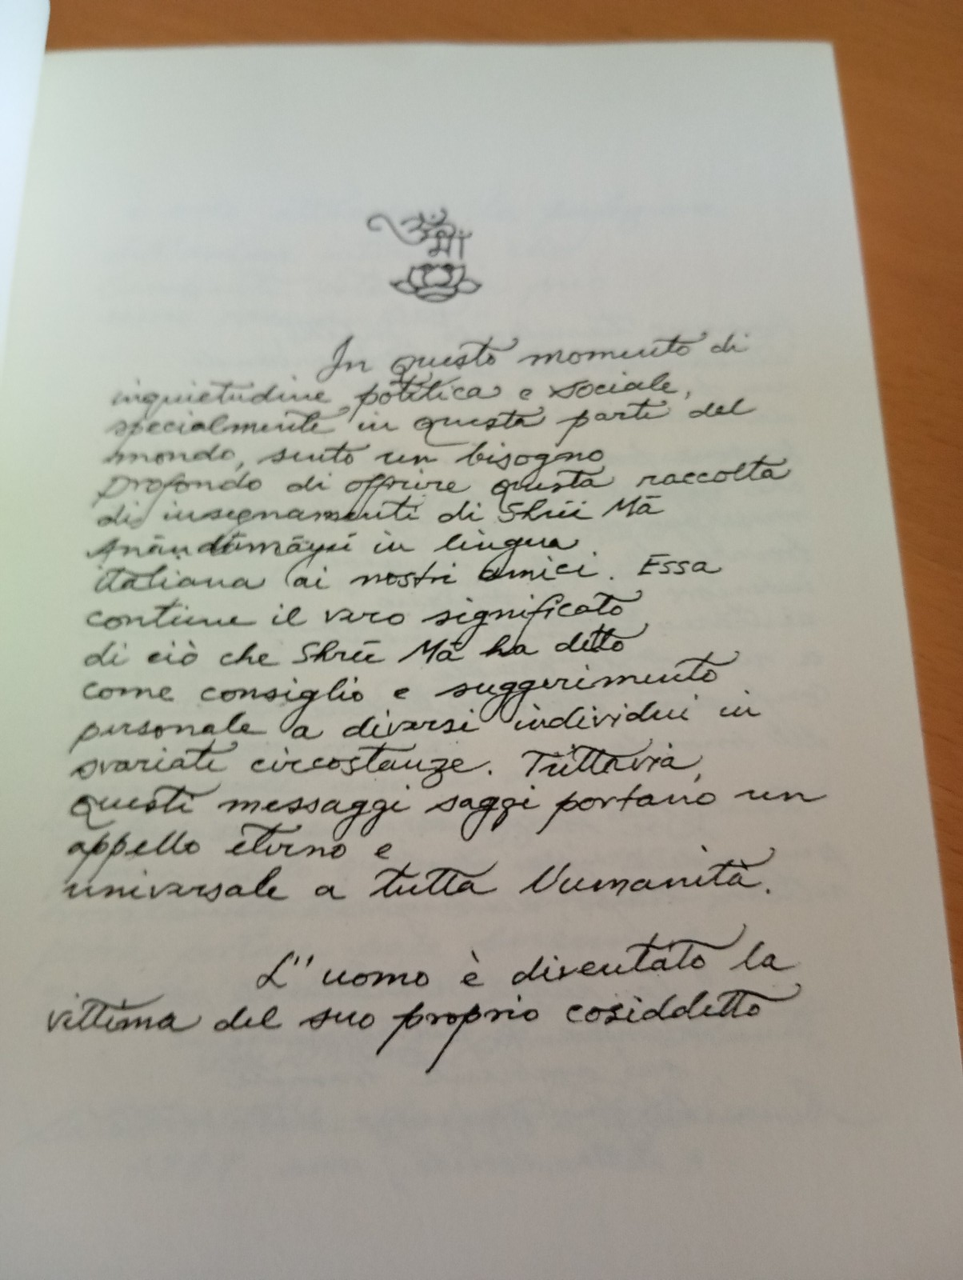 ॐ माँ
In questo momento di
inquietudine politica e sociale,
specialmente in questa parte del
mondo, sento un bisogno
profondo di offrire questa raccolta
di insegnamenti di Shrii Mā
Ānandamāyī in lingua
italiana ai nostri amici. Essa
contiene il vero significato
di ciò che Shrī Mā ha detto
come consiglio e suggerimento
personale a diversi individui in
svariate circostanze. Tuttavia,
questi messaggi saggi portano un
appello eterno e
universale a tutta l'umanità.
L'uomo è diventato la
vittima del suo proprio cosiddetto